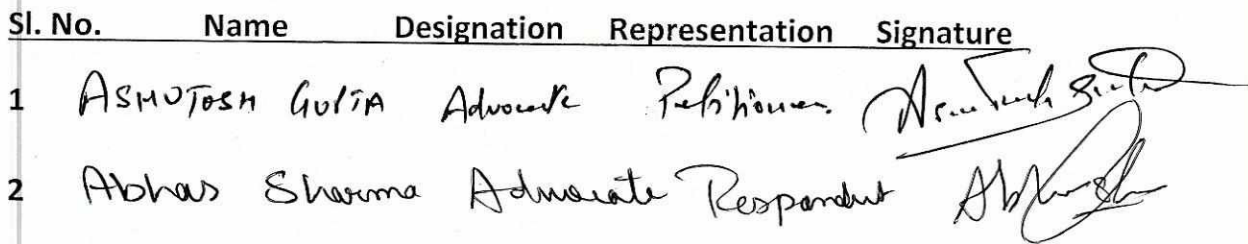 Sl. No. Name Designation Representation Signature
1 ASHUTOSH GUPTA Advocate Petitioner Ashutosh Gupta
2 Abhas Sharma Advocate Respondent Abhas